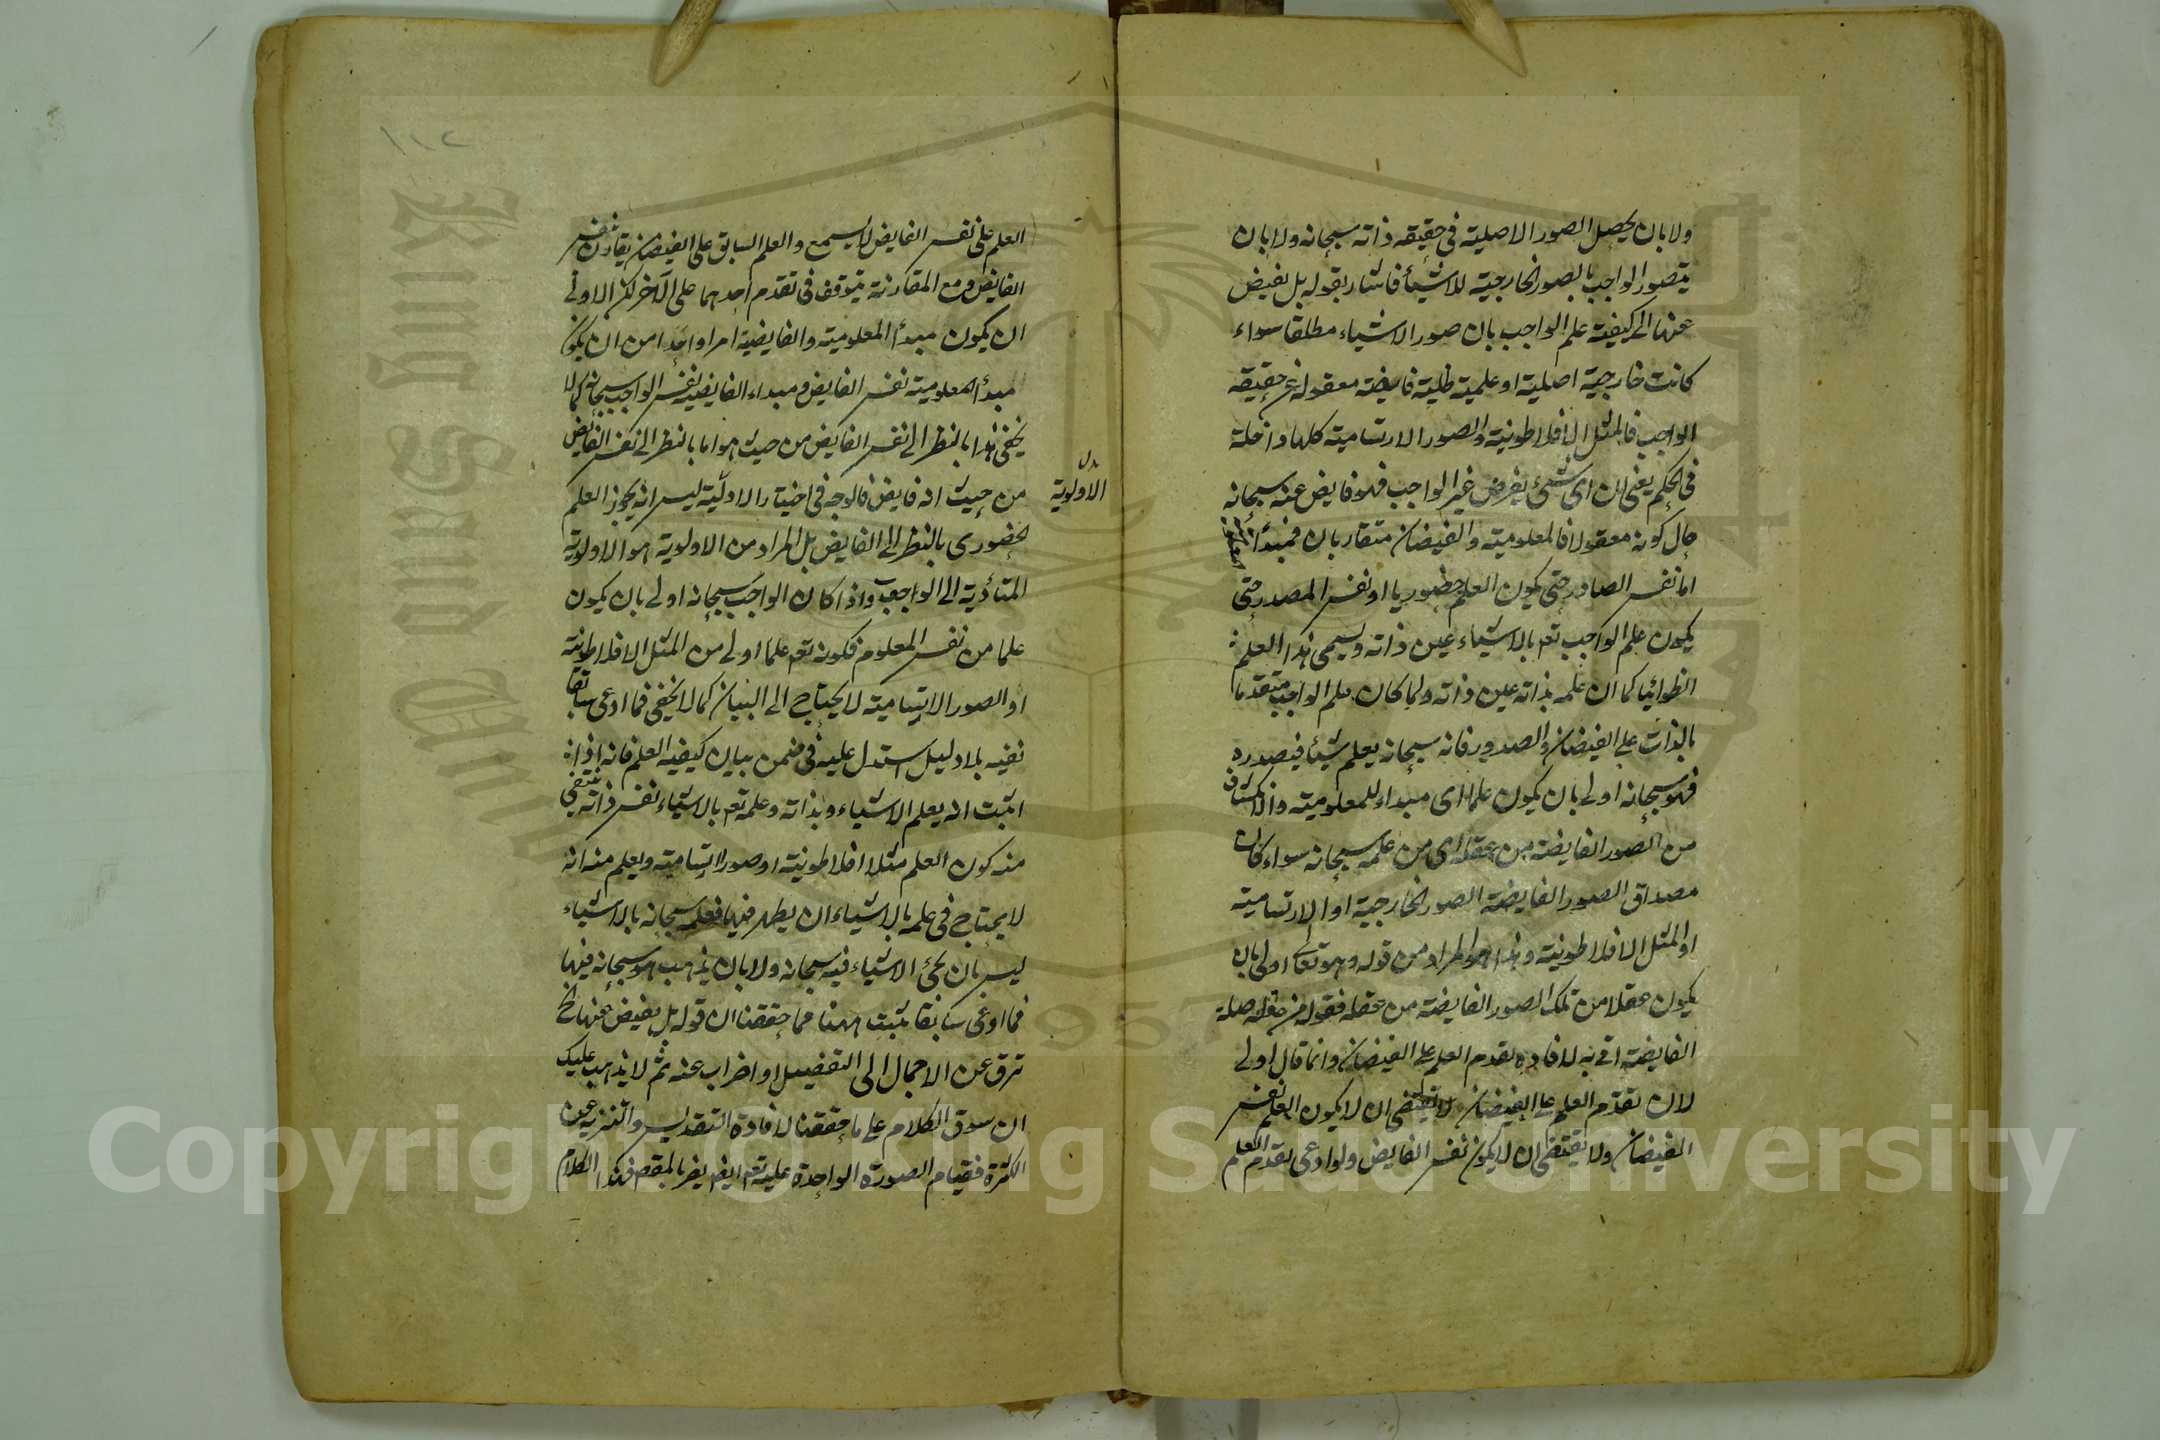 ولا بان يحصل الصور الاصلية فى حقيقه ذاته سبحانه ولا بان
يتصور الواجب بالصور الخارجية للاشياء فاشار بقوله بل تفيض
عنها الى كيفية علم الواجب بان صور الاشياء مطلقا سواء
كانت خارجية اصلية او علمية ظلية فايضة معقولة عن حقيقه
الواجب فالمثل الافلاطونية والصور الارتسامية كلها داخلة
فى الحكم يعنى ان اى شئ يفرض غير الواجب فهو فايض عنه سبحانه
حال كونه معقولا فالمعلومية والفيضان متقاربان فمبدأ
اما نفس الصادر حتى يكون العلم حضوريا او نفس المصدر حتى
يكون علم الواجب تعه بالاشياء عين ذاته ويسمى هذا العلم
انطوائيا كما ان علمه بذاته عين ذاته ولما كان علم الواجب متقدما
بالذات على الفيضان والصدور فانه سبحانه يعلم شيأ فيصدره
فهو سبحانه اولى بان يكون علما اى مبداء للمعلومية والانكشاف
من الصور الفايضة من عقله اى من علمه سبحانه سواء كان
مصداق الصور الفايضة الصور الخارجية او الارتسامية
او المثل الافلاطونية وهذا هو المراد من قوله وهو تعالى اولى بان
يكون عقلا من تلك الصور الفايضة من عقله فقوله من عقله صلة
الفايضة اتى به لافادة تقدم العلم على الفيضان وانما قال اولى
لان تقدم العلم على الفيضان لا يقتضى ان لا يكون العلم نفس
الفيضان ولا يقتضى ان لا يكون نفس الفايض ولو ادعى تقدم العلم
١١٢
العلم على نفس الفايض لا يسمع والعلم السابق على الفيضان يقارن نفس
الفايض ومع المقارنة يتوقف فى تقدم احدهما على الآخر لكن الاولى
ان يكون مبدأ المعلومية والفايضية امرا واحدا من ان يكون
مبدأ المعلومية نفس الفايض ومبداء الفايضية نفس الواجب سبحانه كما لا
يخفى هذا بالنظر الى نفس الفايض من حيث هو اما بالنظر الى نفس الفايض
من حيث انه فايض فالوجه فى اختيار الاولية ليس انه يجوز العلم
الاولوية
حضورى بالنظر الى الفايض بل المراد من الاولوية هو الاولوية
المتأدية الى الواجب واذا كان الواجب سبحانه اولى بان يكون
علما من نفس المعلوم فكونه تعه علما اولى من المثل الافلاطونية
او الصور الارتسامية لا يحتاج الى البيان كما لا يخفى فما ادعى سابقا
نفيه بلا دليل استدل عليه فى ضمن بيان كيفية العلم فانه اذا
اثبت انه يعلم الاشياء وبذاته وعلمه تعه بالاشياء نفس ذاته ينتفى
منه كون العلم مثلا افلاطونية او صورا ارتسامية ويعلم منه انه
لا يحتاج فى علمه بالاشياء ان يظهر فيها فعلمه سبحانه بالاشياء
ليس بان يحئ الاشياء فيه سبحانه ولا بان يذهب هو سبحانه فيها
فما ادعى سابقا يثبت ههنا فما حققنا ان قوله بل تفيض عنها الخ
ترق عن الاجمال الى التفضيل او اضراب عنه ثم لا يذهب عليك
ان سوق الكلام على ما حققنا لافادة التقديس والتنزيه عن
الكثرة فقيام الصورة الواحدة عليه تعه ايضا يضر بالمقصود هذا الكلام